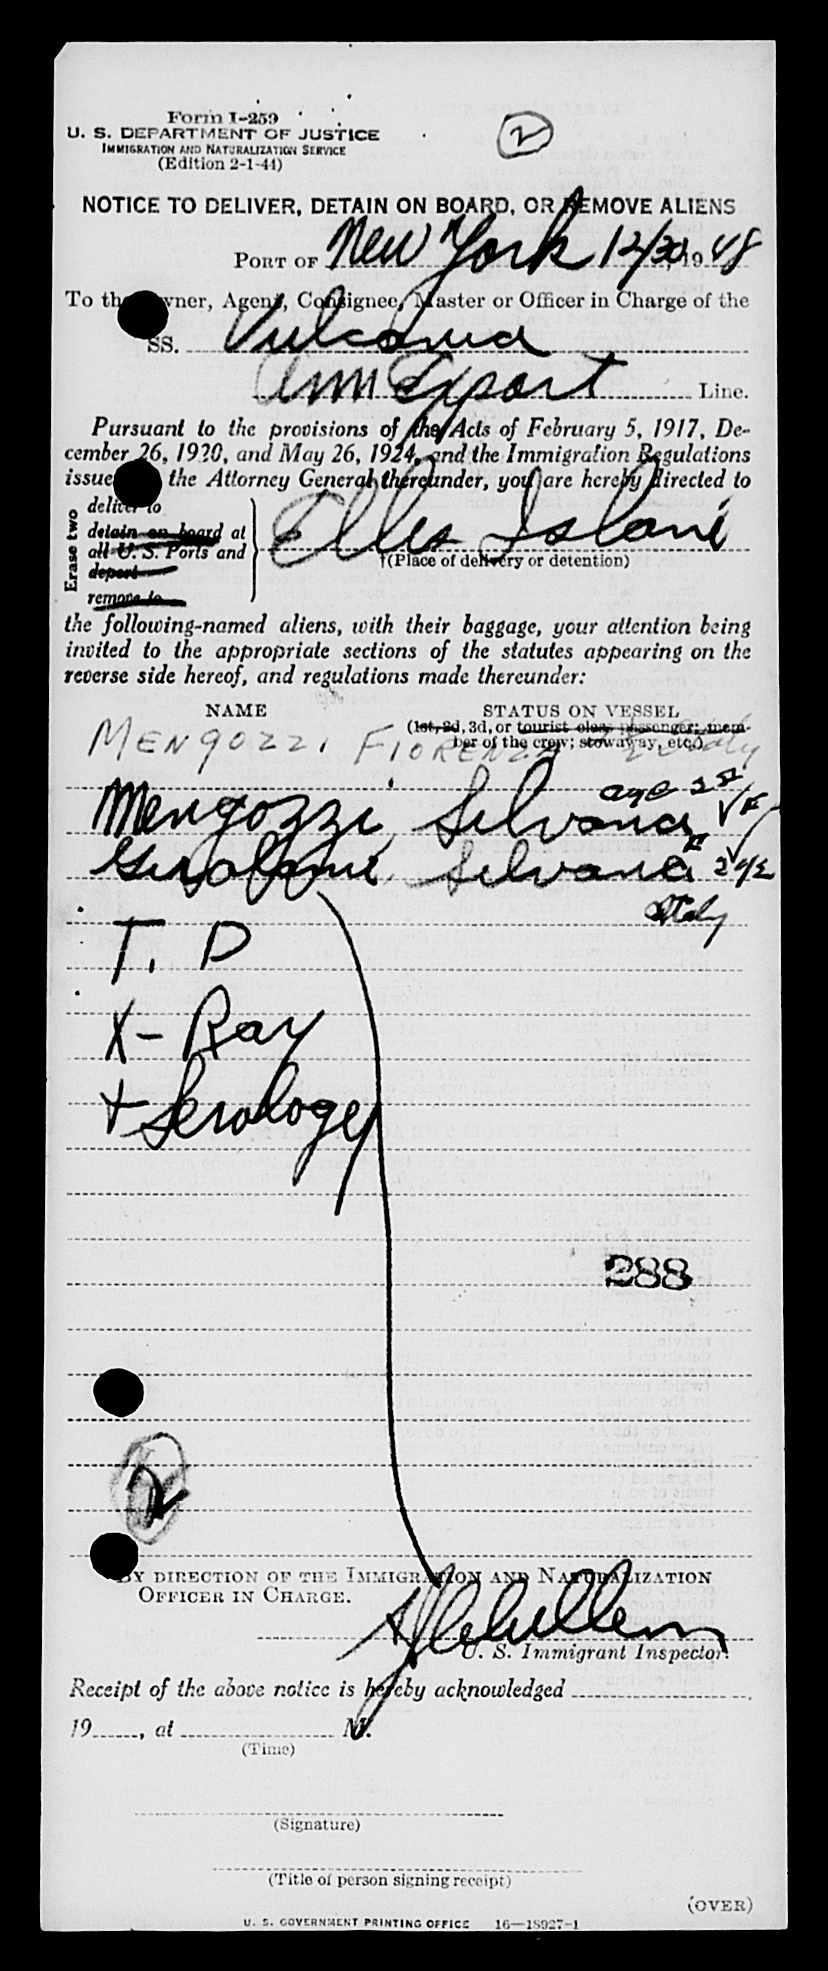 Form I-259
U. S. DEPARTMENT OF JUSTICE
IMMIGRATION AND NATURALIZATION SERVICE
(Edition 2-1-44)
2
NOTICE TO DELIVER, DETAIN ON BOARD, OR REMOVE ALIENS
PORT OF New York 12/30, 1948
To the Owner, Agent, Consignee, Master or Officer in Charge of the
SS. Vulcania
Am Export Line.
Pursuant to the provisions of the Acts of February 5, 1917, De-
cember 26, 1920, and May 26, 1924, and the Immigration Regulations
issued the Attorney General thereunder, you are hereby directed to
Erase two
deliver to
detain on board at
all U. S. Ports and
deport
remove to
Ellis Island
†(Place of delivery or detention)
the following-named aliens, with their baggage, your attention being
invited to the appropriate sections of the statutes appearing on the
reverse side hereof, and regulations made thereunder:
NAME STATUS ON VESSEL
(1st, 2d, 3d, or tourist class passenger; mem-
ber of the crew; stowaway, etc.)
MENGOZZI FIORENZA Italy
Mengozzi, Silvana age 2
Silvana F
Italy
T. D
X-Ray
+ Serology
288
2
BY DIRECTION OF THE IMMIGRATION AND NATURALIZATION
OFFICER IN CHARGE.
U. S. Immigrant Inspector.
Receipt of the above notice is hereby acknowledged
19____, at M.
(Time)
(Signature)
(Title of person signing receipt)
(OVER)
U. S. GOVERNMENT PRINTING OFFICE 16—18927-1